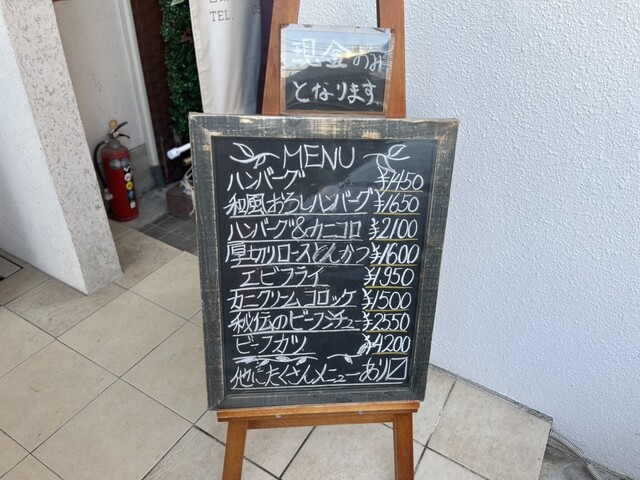 TEL.
現金のみ
となります
MENU
ハンバーグ ¥1450
和風おろしハンバーグ ¥1650
ハンバーグ&カニコロ ¥2100
厚切りロースとんかつ ¥1600
エビフライ ¥1950
カニクリームコロッケ ¥1500
秘伝のビーフシチュー ¥2550
ビーフカツ ¥4200
他にたくさんメニューあり〼